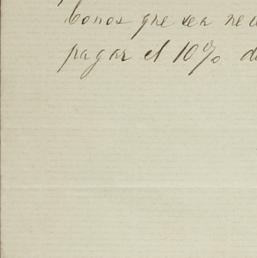 bonos que sea ne
pagar el 10% d